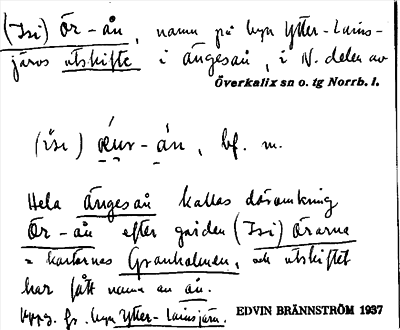 (Isi) Ör-ån, namn på byn Ytter-Lains-
järvs utskifte i Ängesån, i N. delen av
Överkalix sn o. tg Norrb. l.
(isi) -án, bf. m.
Hela Ängesån kallas däromkring
Ör-ån efter gården (Isi) Örarna
= kartornas Granholmen, och utskiftet
har fått namn av ån.
Uppg. fr. byn Ytter-Lainsjärv.
EDVIN BRÄNNSTRÖM 1937